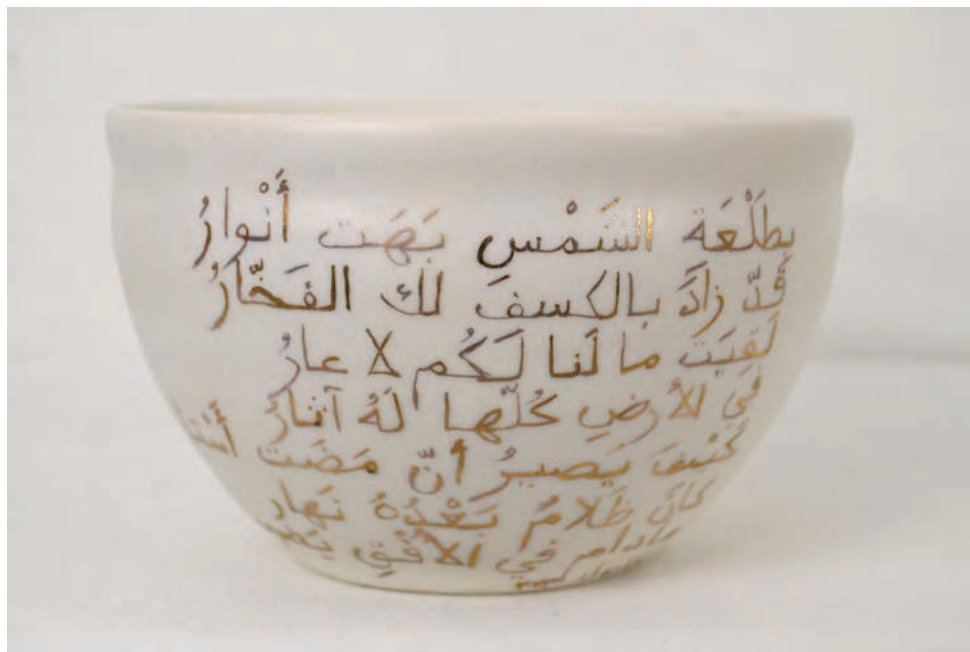 بِطَلْعَة الشَمْسِ بَهَت أَنْوارُ
قَدّ زادَ بالكسفِ لك الفَخّارُ
لَقِيَت ما لَنا لَكُم لا عارُ
في الأرضِ كُلّها لَهُ آثارُ
كَيْفَ يَصيرُ أنّ مَضَت
كانَ ظَلامُ بَعْدُهُ نَهار
مادام في الأفْقِ